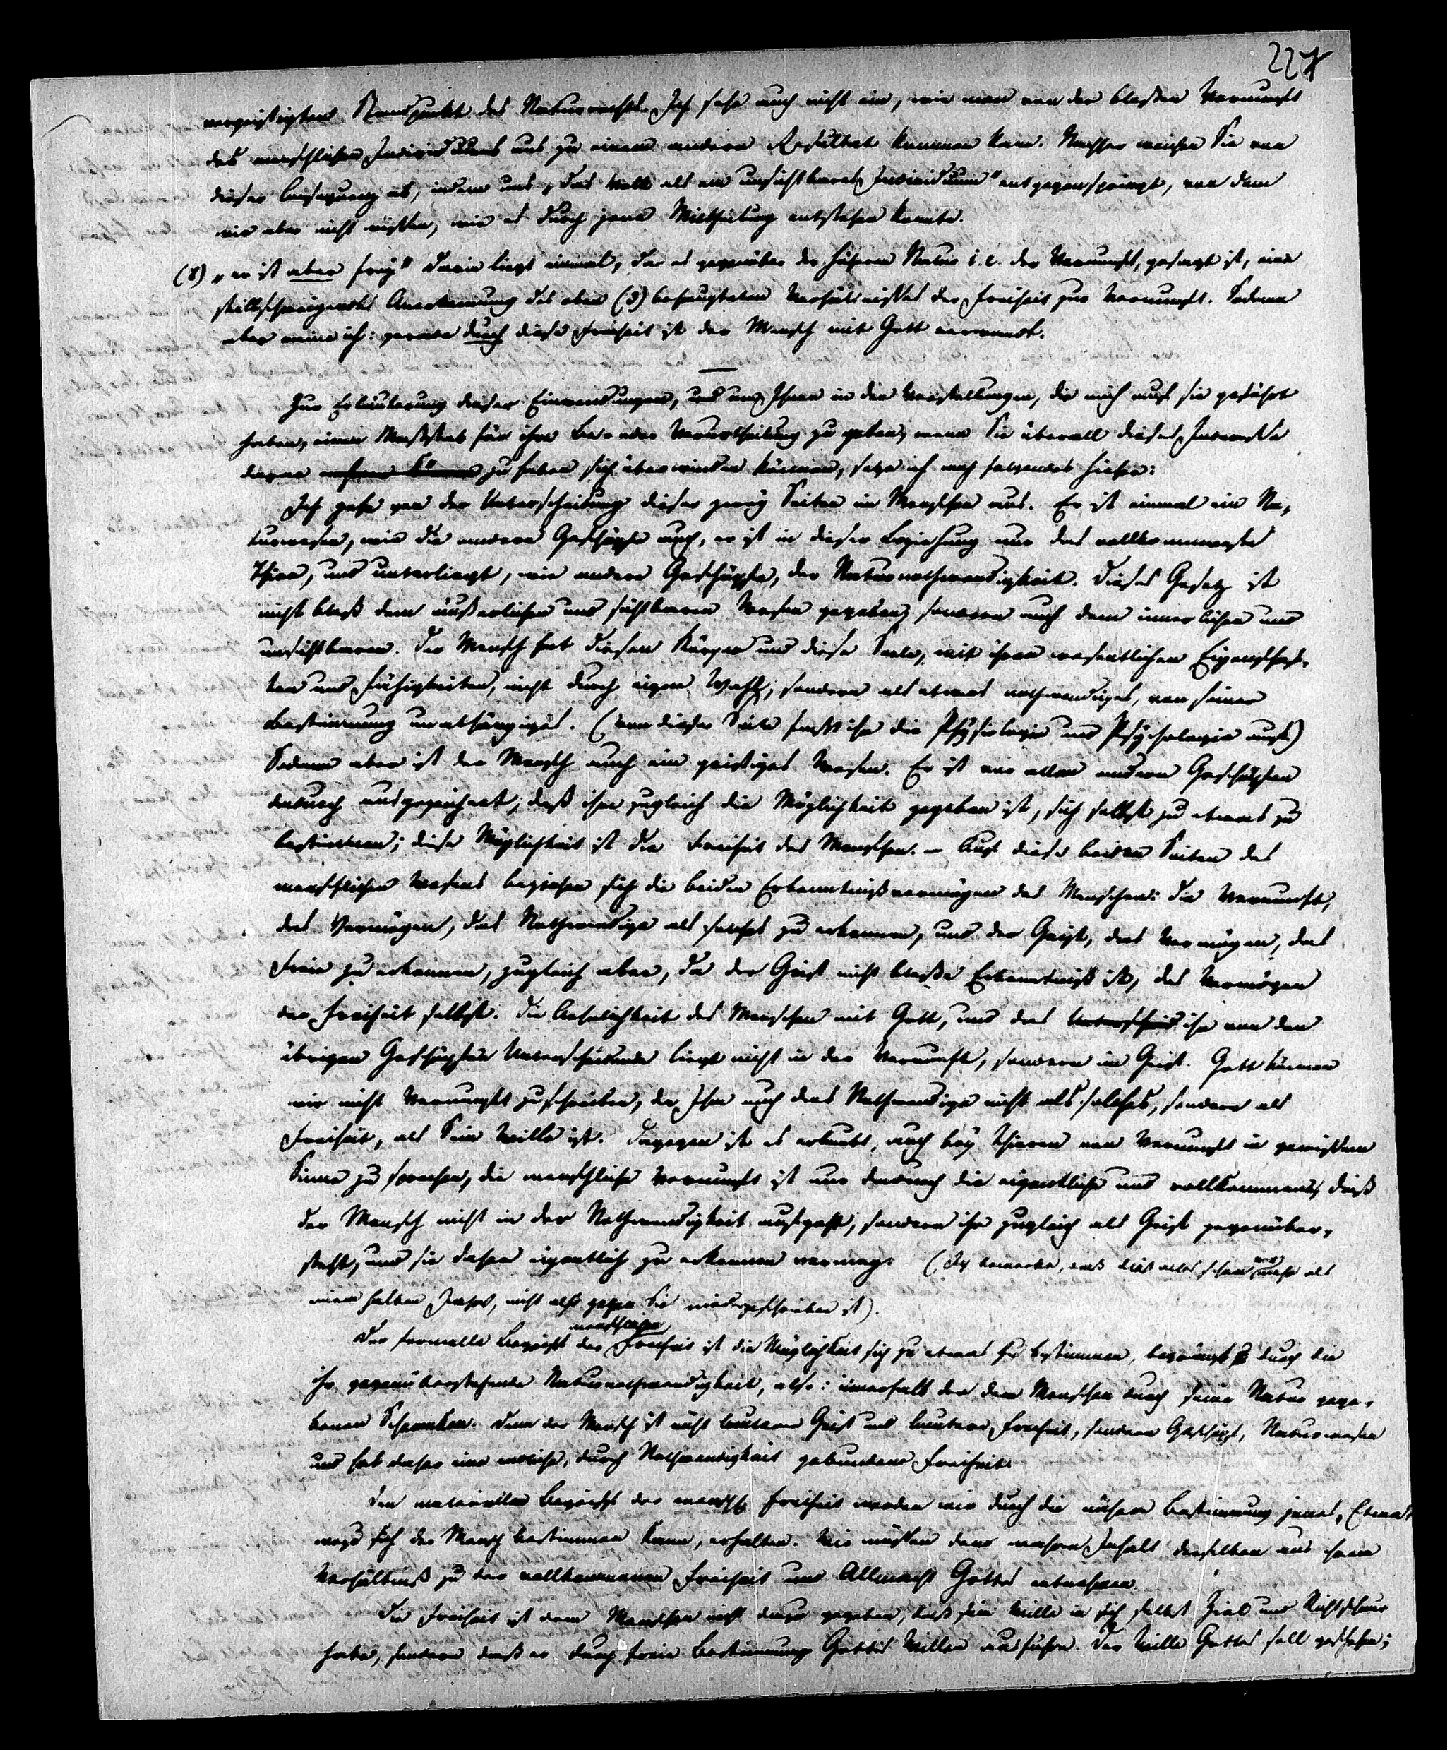 227
vergeistigten Standpunkt des Naturrechts. Ich sehe auch nicht ein, wie man von der bloßen Vernunft
des menschlichen Individuums aus zu einem andern Resultat kommen kann. Nachher weichen Sie von
dieser Besorgung ab, indem uns „das Volk als ein unsichtbares Individuum“ entgegenspringt, von dem
wir aber nicht wissen, wie es durch jene Mittheilung entstehen konnte.
(8) „er ist aber frey“ Darin liegt einmal, da es gegenüber der höhern Natur i.e. der Vernunft, gesagt ist, eine
stillschweigende Anerkennung des oben (3) behaupteten Verhältnisses der Freiheit zur Vernunft. Sodann
aber meine ich: gerade durch diese Freiheit ist der Mensch mit Gott verwandt.
Zur Erläuterung dieser Einwendungen, und um Ihnen in den Vorstellungen, die mich auf sie geführt
haben, einen Maßstab für ihre Be- oder Verurtheilung zu geben, wenn Sie überall dieses Interesse
daran zu haben sich überwinden können, setze ich noch folgendes hieher:
Ich gehe von der Unterscheidung dieser zwey Seiten im Menschen aus. Er ist einmal ein Na-
turwesen, wie die andern Geschöpfe auch, er ist in dieser Beziehung nur das vollkommenste
Thier, und unterliegt, wie andere Geschöpfe, der Naturnothwendigkeit. Dieses Gesetz ist
nicht bloß dem äußerlichen und sichtbaren Wesen gegeben, sondern auch dem innerlichen und
unsichtbaren. Der Mensch hat diesen Körper und diese Seele, mit ihren wesentlichen Eigenschaf-
ten und Fähigkeiten, nicht durch eigene Wahl, sondern als etwas nothwendiges, von seiner
Bestimmung unabhängiges. (Von dieser Seite fassen ihn die Physiologie und Psychologie auf)
Sodann aber ist der Mensch auch ein geistiges Wesen. Er ist vor allen andern Geschöpfen
dadurch ausgezeichnet, daß ihm zugleich die Möglichkeit gegeben ist, sich selbst zu etwas zu
bestimmen; diese Möglichkeit ist die Freiheit des Menschen. – Auf diese beiden Seiten des
menschlichen Wesens beziehen sich die beiden Erkenntnißvermögen des Menschen: die Vernunft,
das Vermögen, das Nothwendige als solches zu erkennen, und der Geist, das Vermögen, das
Freie zu erkennen, zugleich aber, da der Geist nicht bloße Erkenntniß ist, das Vermögen
der Freiheit selbst. Die Aehnlichkeit des Menschen mit Gott, und das Unterschied ihn von den
übrigen Geschöpfen Unterscheidende liegt nicht in der Vernunft, sondern im Geist. Gott können
wir nicht Vernunft zuschreiben, da Ihm auch das Nothwendige nicht als solches, sondern als
Freiheit, als Sein Wille ist. Dagegen ist es erlaubt, auch bey Thieren von Vernunft in gewissem
Sinne zu sprechen, die menschliche Vernunft ist nur dadurch die eigentliche und vollkommene, daß
der Mensch nicht in der Nothwendigkeit aufgeht, sondern ihr zugleich als Geist gegenüber-
steht, und sie daher eigentlich zu erkennen vermag. (Ich bemerke, daß dieß alles schon vor mehr als
einem halben Jahr, nicht also gegen Sie niedergeschrieben ist).
Der formelle Begriff der menschlichen Freiheit ist die Möglichkeit sich zu etwas zu bestimmen, begränzt durch die
ihr gegenüberstehende Naturnothwendigkeit, also: innerhalb der dem Menschen durch seine Natur gege-
benen Schranken. Denn der Mensch ist nicht lauterer Geist und lautere Freiheit, sondern Geschöpf, Naturwesen
und hat daher eine endliche, durch Nothwendigkeit gebundene Freiheit.
Den materiellen Begriff der menschl. Freiheit werden wir durch die nähere Bestimmung jenes „Etwas“
wozu sich der Mensch bestimmen kann, erhalten. Wir müssen den wahren Inhalt derselben aus ihrem
Verhältniß zu der vollkommenen Freiheit und Allmacht Gottes entnehmen.
Die Freiheit ist dem Menschen nicht dazu gegeben, daß sein Wille in sich selbst Ziel und Richtschnur
habe, sondern daß er durch freie Bestimmung Gottes Willen ausführe. Der Wille Gottes soll geschehen;